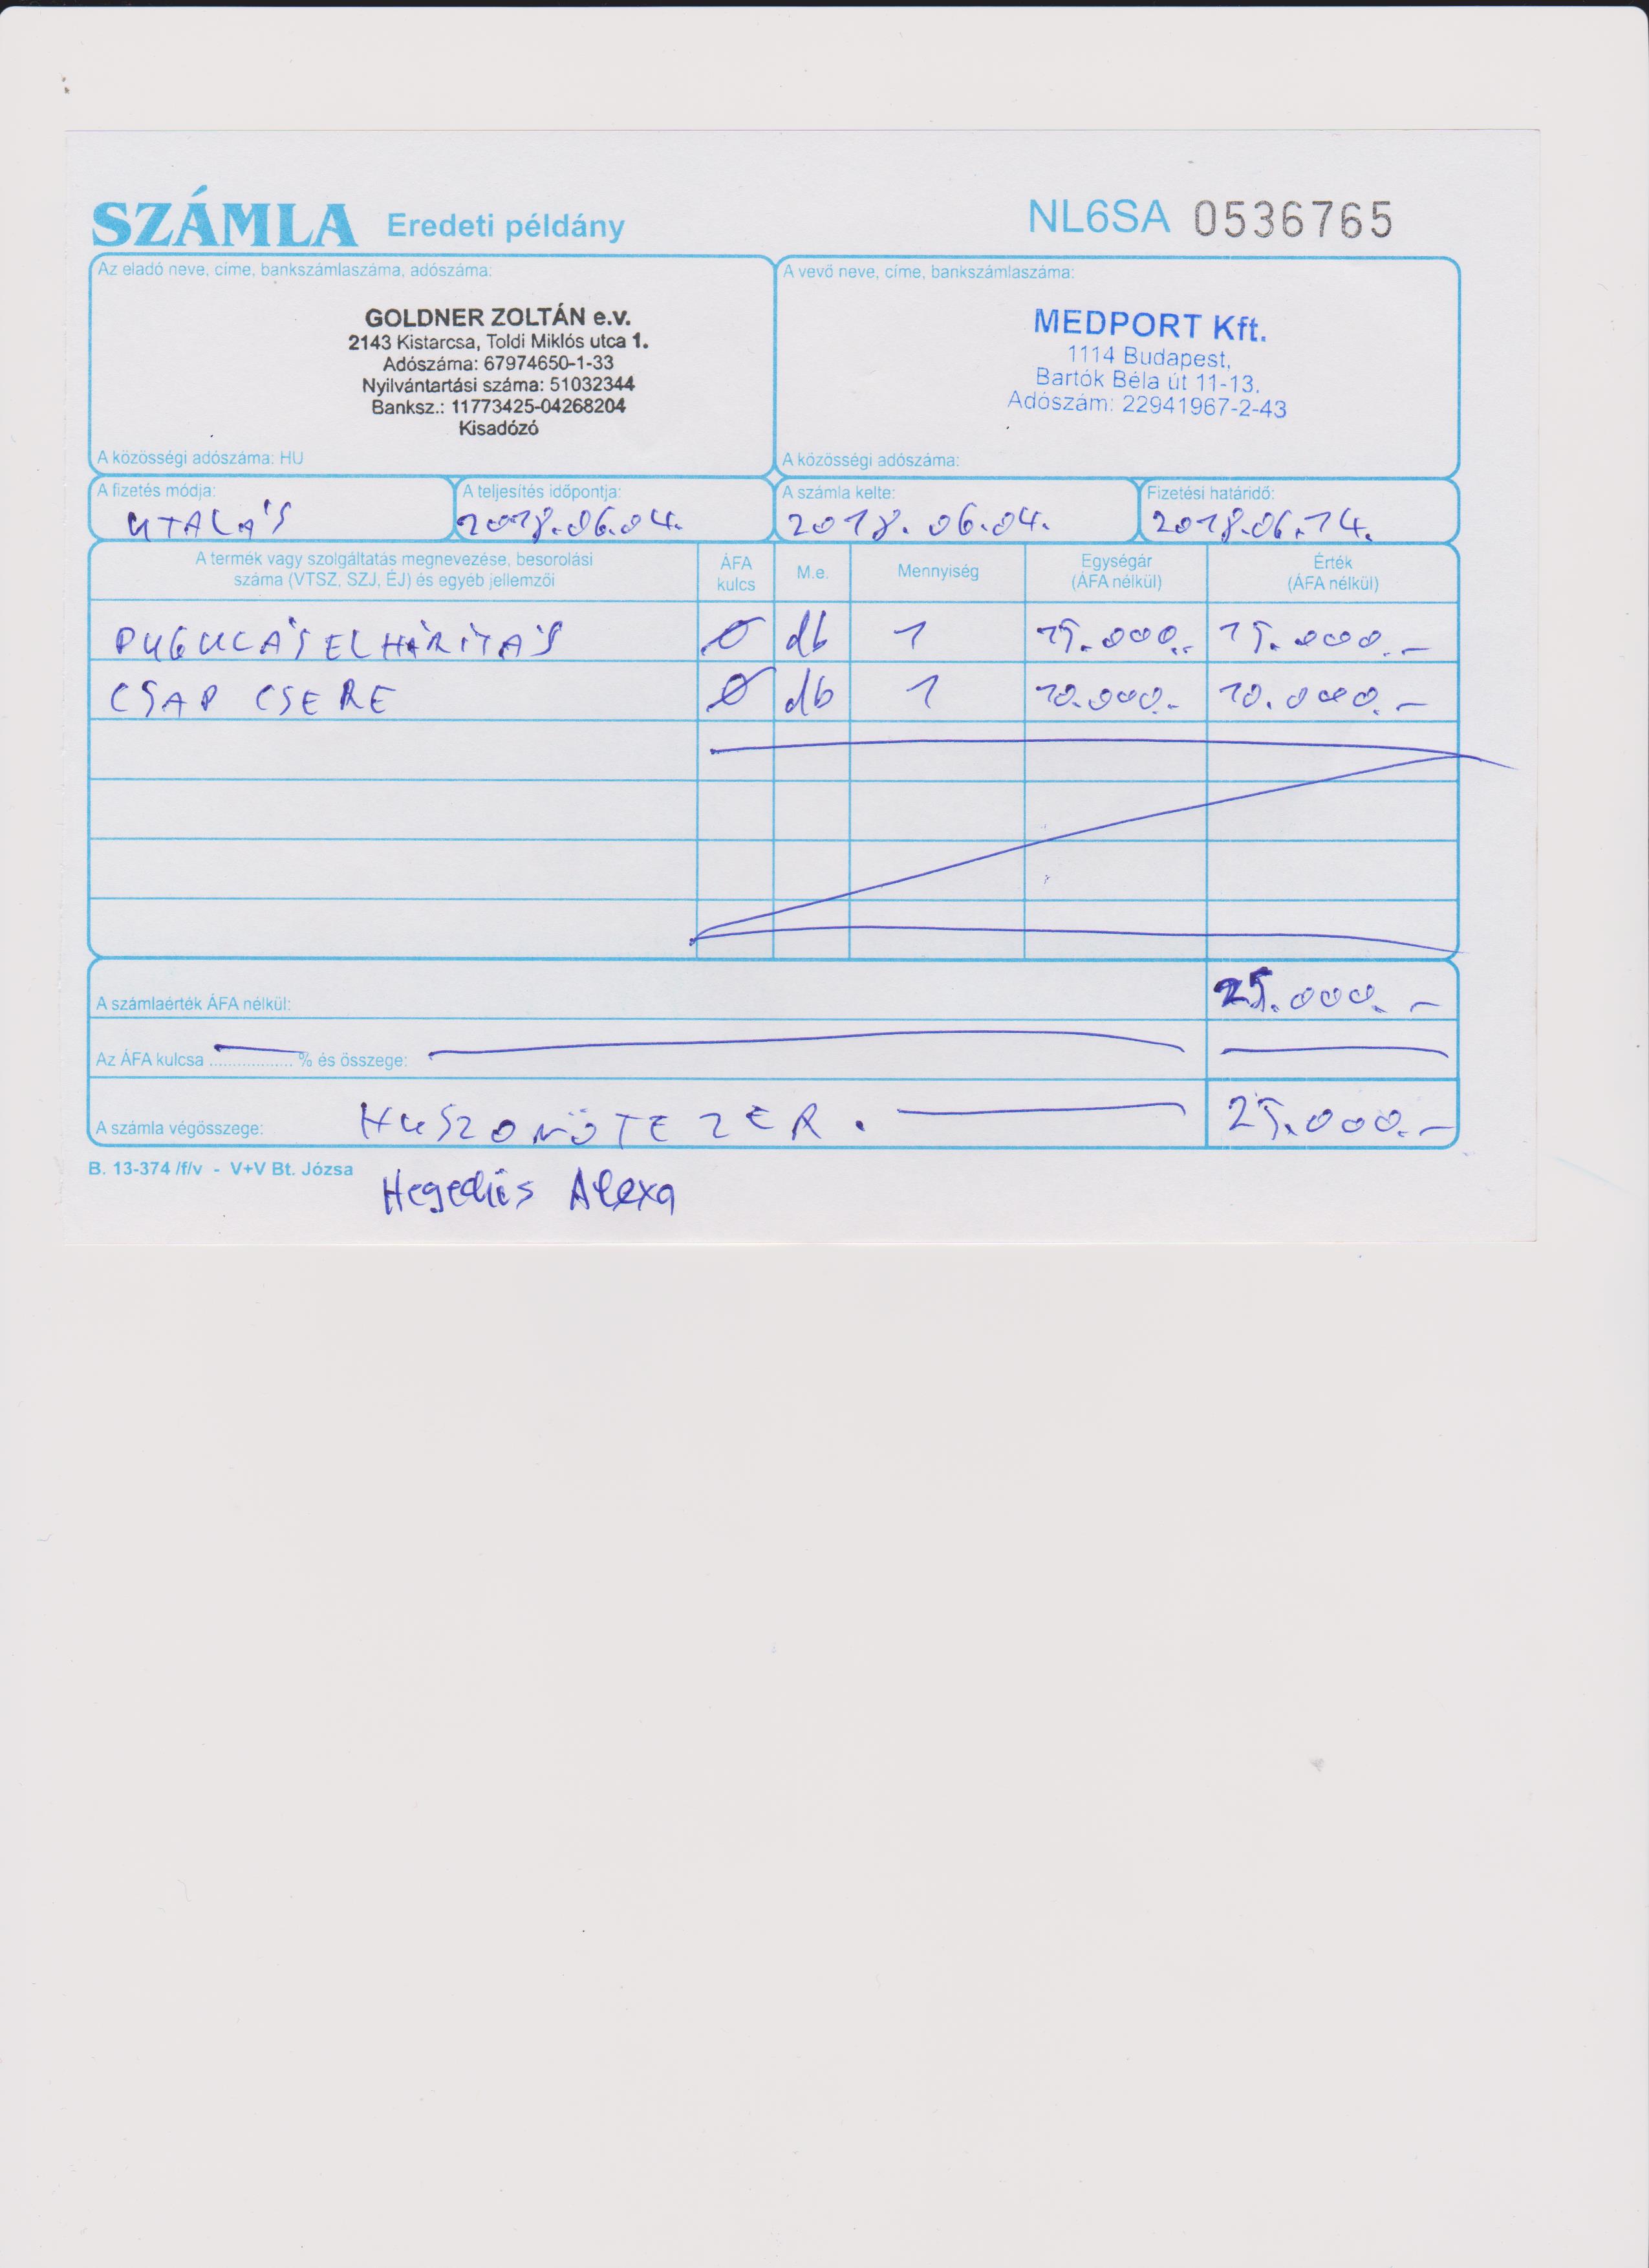 SZÁMLA Eredeti példány NL6SA 0536765
Az eladó neve, címe, bankszámlaszáma, adószáma:
GOLDNER ZOLTÁN e.v.
2143 Kistarcsa, Toldi Miklós utca 1.
Adószáma: 67974650-1-33
Nyilvántartási száma: 51032344
Banksz.: 11773425-04268204
Kisadózó
A közösségi adószáma: HU
A vevő neve, címe, bankszámlaszáma:
MEDPORT Kft.
1114 Budapest,
Bartók Béla út 11-13.
Adószám: 22941967-2-43
A közösségi adószáma:
A fizetés módja: A teljesítés időpontja: A számla kelte: Fizetési határidő:
UTALÁS 2018.06.04. 2018.06.04. 2018.06.14.
A termék vagy szolgáltatás megnevezése, besorolási
száma (VTSZ, SZJ, ÉJ) és egyéb jellemzői
ÁFA
kulcs
M.e.
Mennyiség
Egységár
(ÁFA nélkül)
Érték
(ÁFA nélkül)
DUGULÁSELHÁRITÁS 0 db 1 15.000.- 15.000.-
CSAP CSERE 0 db 1 10.000.- 10.000.-
A számlaérték ÁFA nélkül: 25.000.-
Az ÁFA kulcsa .................. % és összege:
A számla végösszege: HUSZONÖTEZER. 25.000.-
B. 13-374 /f/v - V+V Bt. Józsa
Hegedüs Alexa